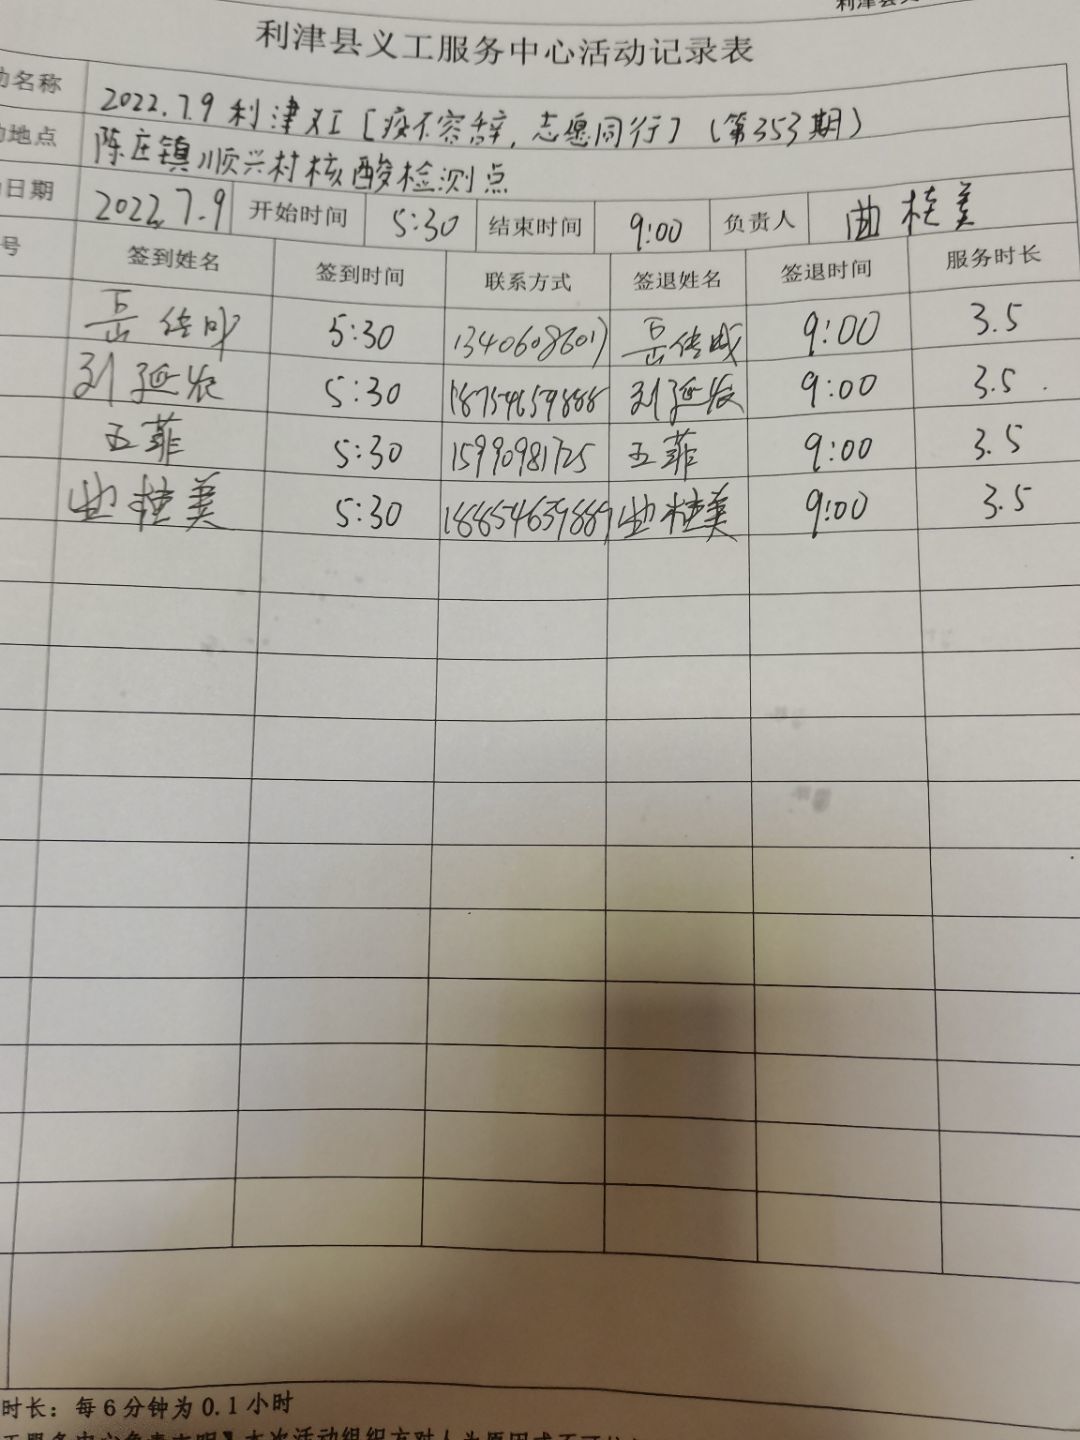 利津县义
利津县义工服务中心活动记录表
动名称 2022.7.9利津义工[疫不容辞,志愿同行](第353期)
动地点 陈庄镇顺兴村核酸检测点
日期 2022.7.9 开始时间 5:30 结束时间 9:00 负责人 曲桂美
号 签到姓名 签到时间 联系方式 签退姓名 签退时间 服务时长
岳传成 5:30 13406086017 岳传成 9:00 3.5
刘延农 5:30 18754659888 刘延农 9:00 3.5
王菲 5:30 15990981725 王菲 9:00 3.5
曲桂美 5:30 18854659889 曲桂美 9:00 3.5
时长：每6分钟为0.1小时